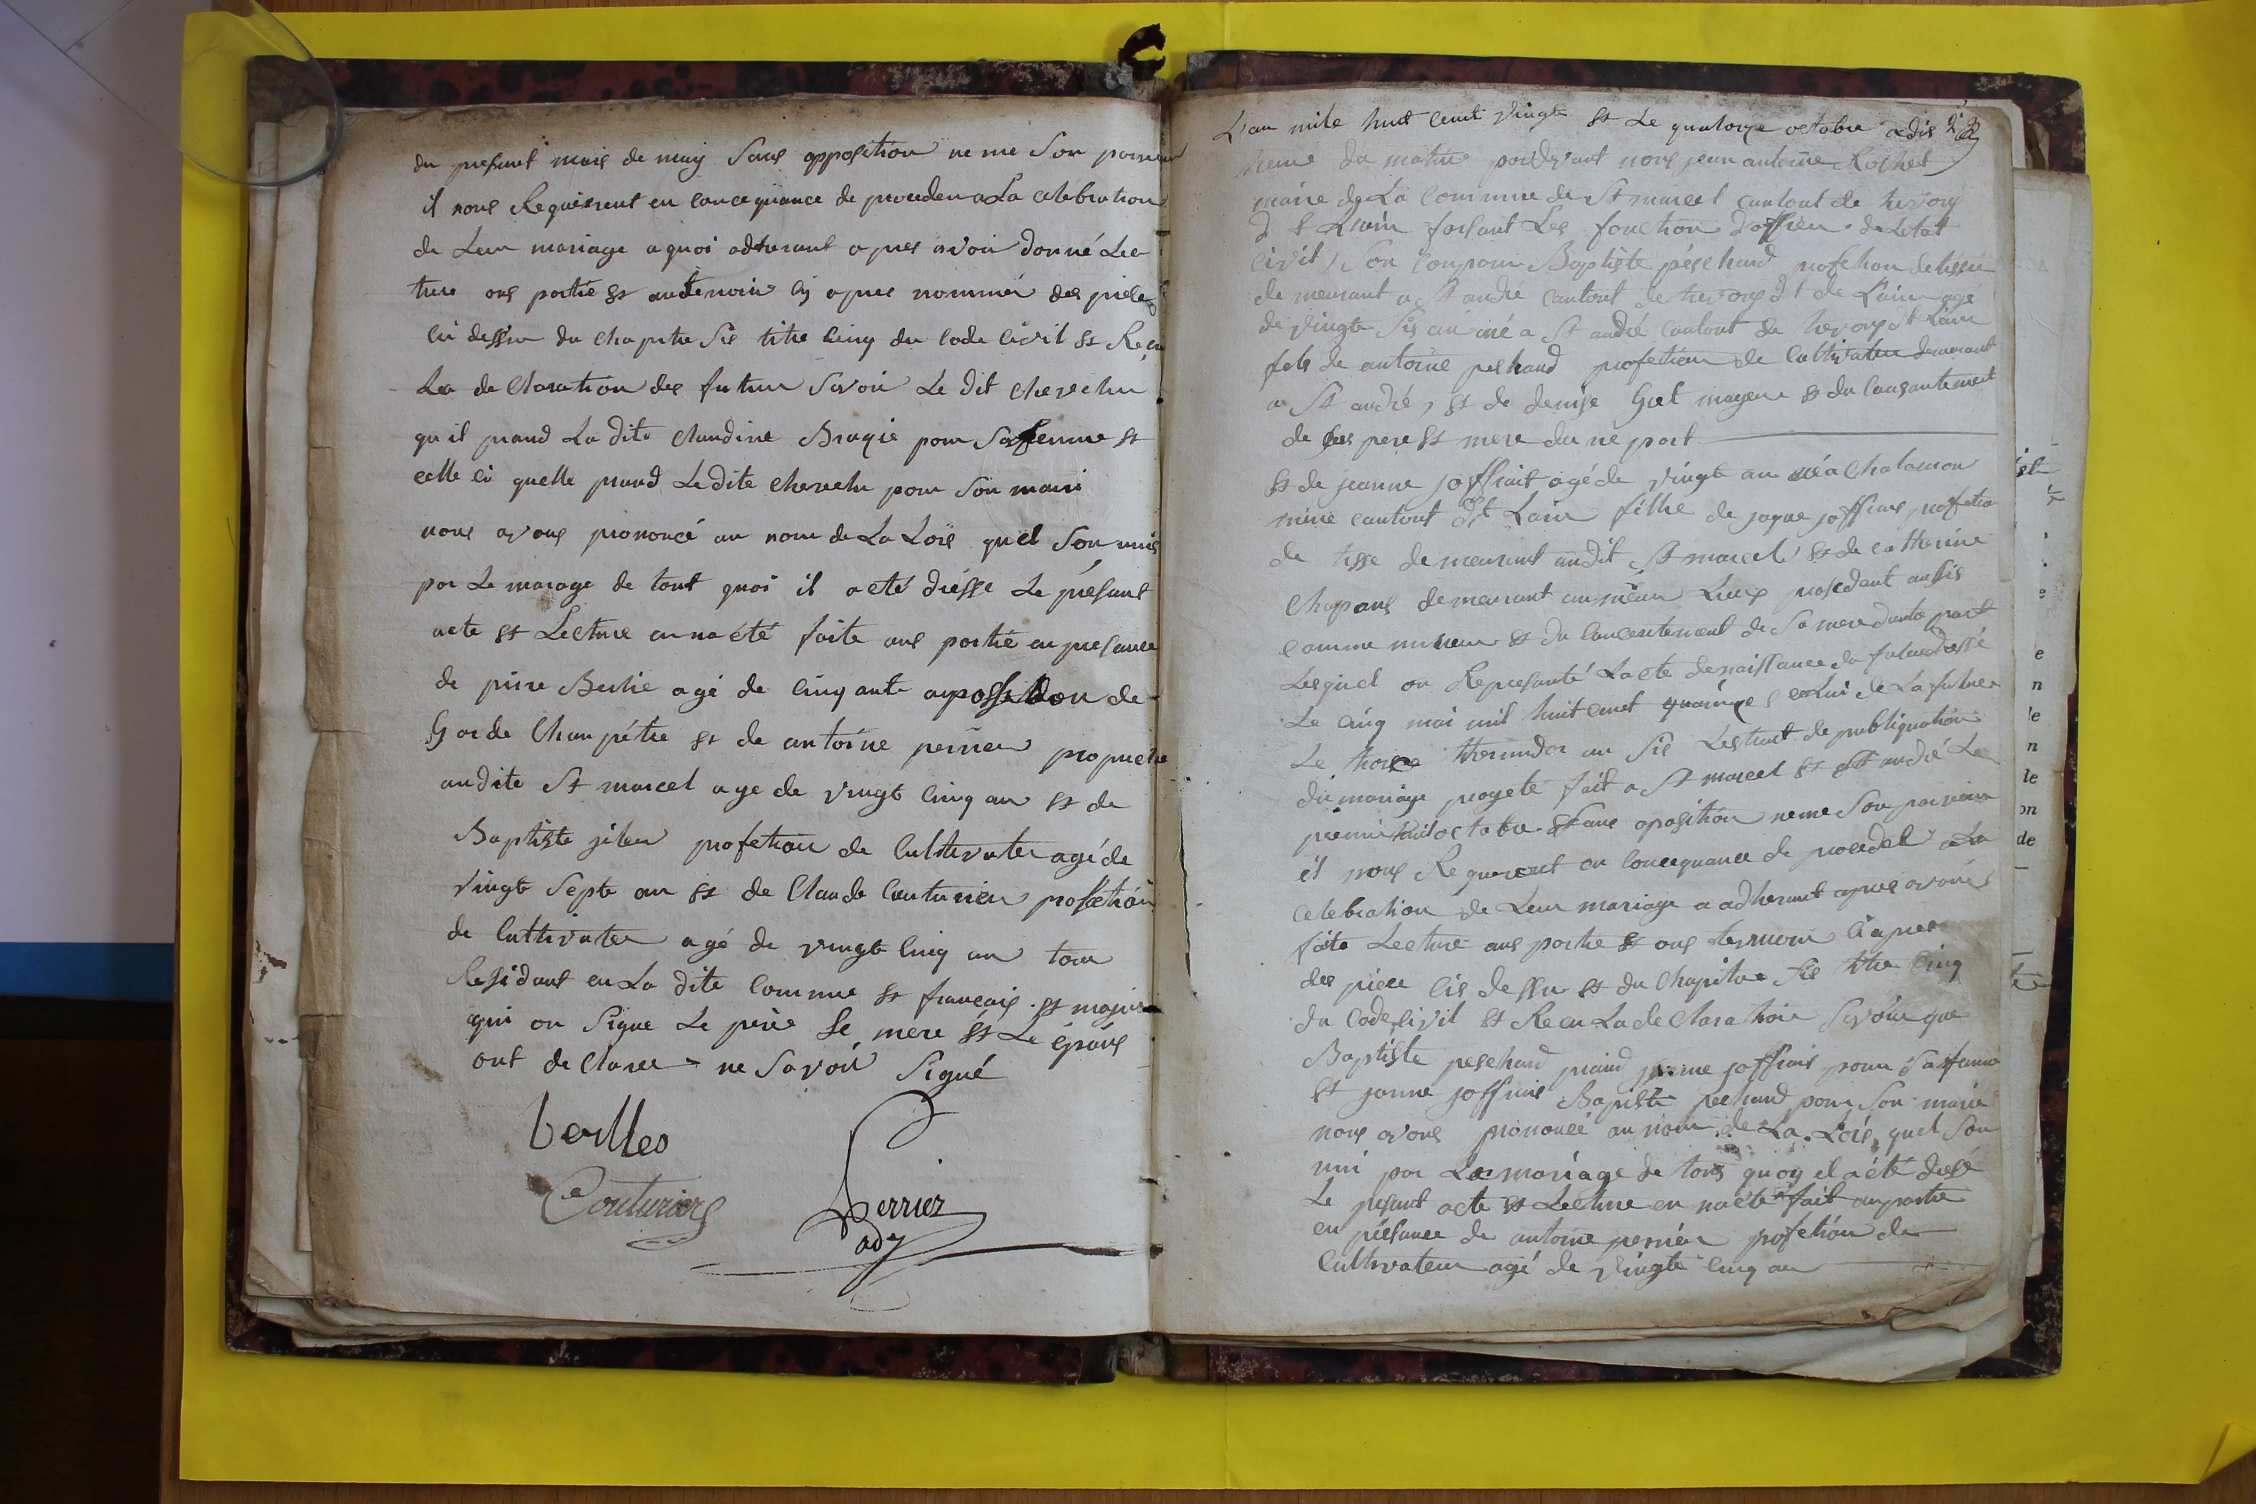 du presant mois de may sans opposition ne me son parvenu
il nous Requierent en conceqüance de proceder a La celebration
de Leur mariage a quoi adherant apres avoir donné Lec
ture aus partie et au temoin cy apres nommér des piece
ci dessu du chapitre sis titre cinq du code civil et Reçu
La de claration des futur savoir Le dit cherechu
qu'il prand La dite claudine Brogie pour sa femme et
celle ci quelle prand Le dite cherechu pour son mari
nous avons prononcé au nom de La Lois quel son unis
par Le marage de tout quoi il a été drésse Le présant
acte et Lecture en na été faite aus partie en presance
de piere Berlie agé de cinquante an possession de
Garde Champétre et de antoine perrier propriete
audite St marcel agé de vingt cinq an et de
Baptiste profetion de cultivater agé de
vingt septe an et de claude couturier profetion
de cultivater agé de vingt cinq an tous
Residant en La dite commune et français et majeur
qui on signe Le pere Le mere et Le épous
ont de claree ne savoir signé
Couturier
Perrier
adj
L'an mile huit cent vingt et Le quatorze octobre a dis
heure du matin pardevant nous jean antoine Rochet
maire de La commune de St marcel cantont de trevoux
d t Lain faisant Les fonction d'officier de Letat
civil son conparu Baptiste péschard profetion de tissie
de meurant a St andré cantont de trevoux d t de Lain agé
de vingte sis an né a St andré cantont de trevoux d t Lain
fils de antoine peshard profetion de cultivateur demeurant
a St andré, et de denise Guet mageur et du consantement
de ses pere et mere du ne part
et de jeanne joffrait agé de vingt an né a chalamon
mine cantont dt Lain fillie de jaque joffrais profetion
de tisse de meurant audit St marcel et de catherine
chapans demeurant au méme Lieux prosedant aussis
comme mineur et du concentement de sa mere dautre part
Lesquel on Represanté Lacte de naissance du futur dressé
Le cinq mai mil huit cent quainze celui de La future
Le thermidor an sis Lestrait de publiquation
du mariage progeté fait a St marcel et St andré Le
premie huit octobre et sans oposition ne me son parvenu
il nous Requerent en conceqüance de proceder a La
celebration de Leur mariage a adherant apres avoir
faite Lecture aus partie et aus termoin ci apres
des piece cis dessu et du chapitre sis titre cinq
du code civil et Recu La de claration savoir que
Baptiste peschard prand jeanne joffrais pour sa fame
et janne joffrais Baptiste peshard pour son marie
nous avons prononcé au nom de La Lois quel son
uni par Le mariage de tous quoy il a été dresé
Le présant acte et Lecture en na été fait au partie
en présance de antoine perriér profetion de
cultivateur agé de vingte cinq an